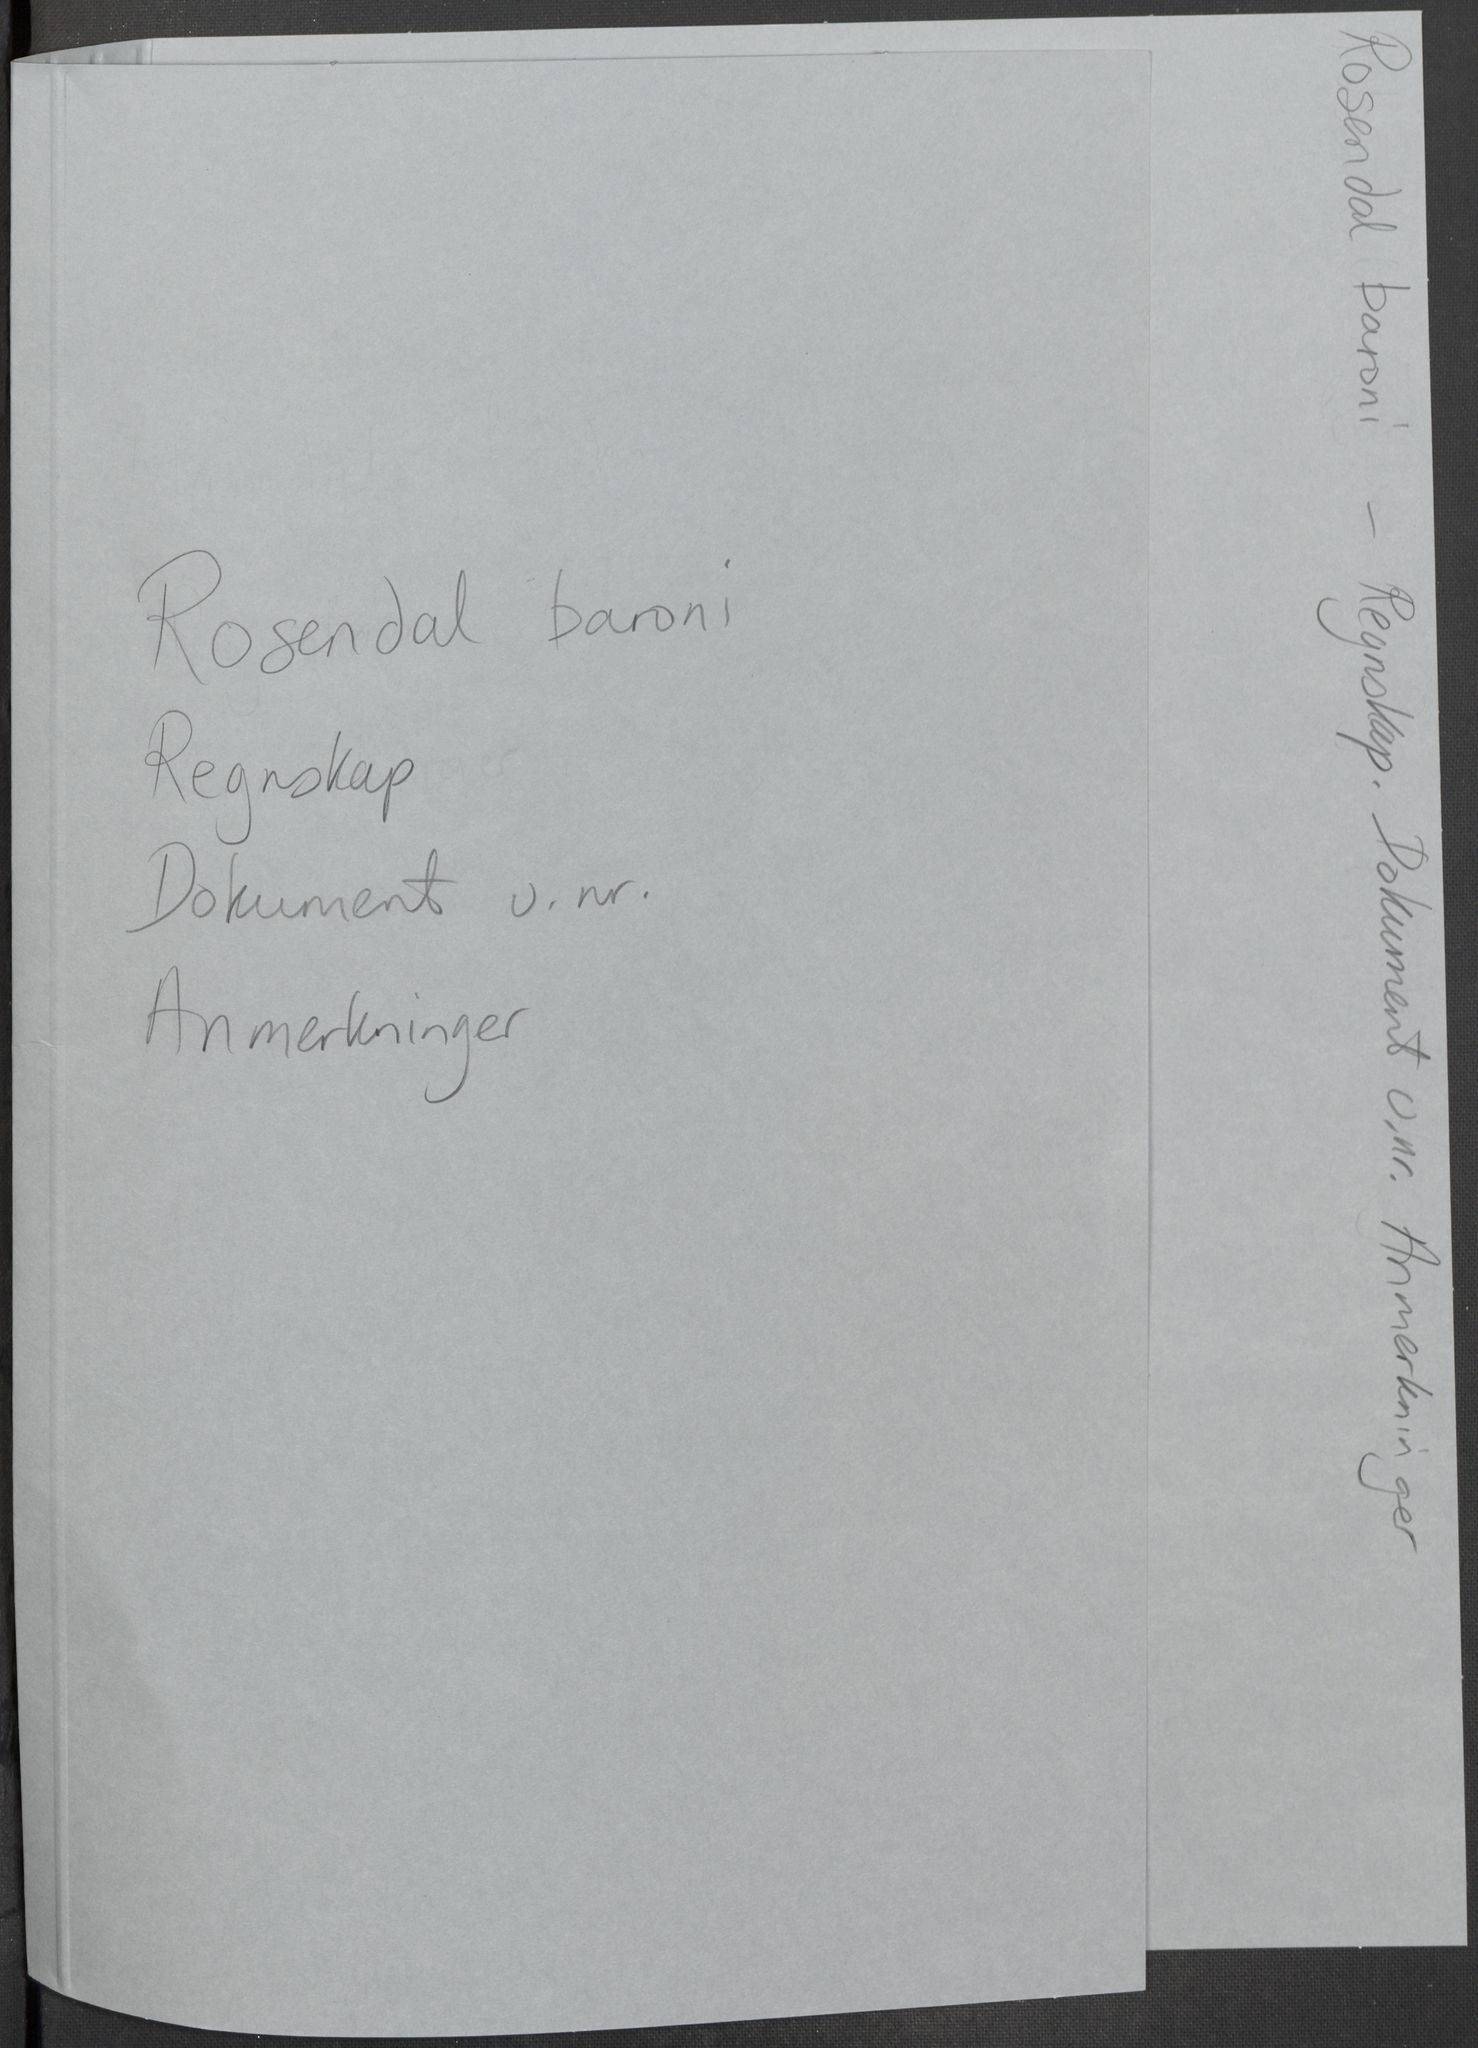 Rosendal baroni
Regnskap
Dokument u.nr.
Anmerkninger
Rosendal baroni - Regnskap. Dokument u.nr. Anmerkninger